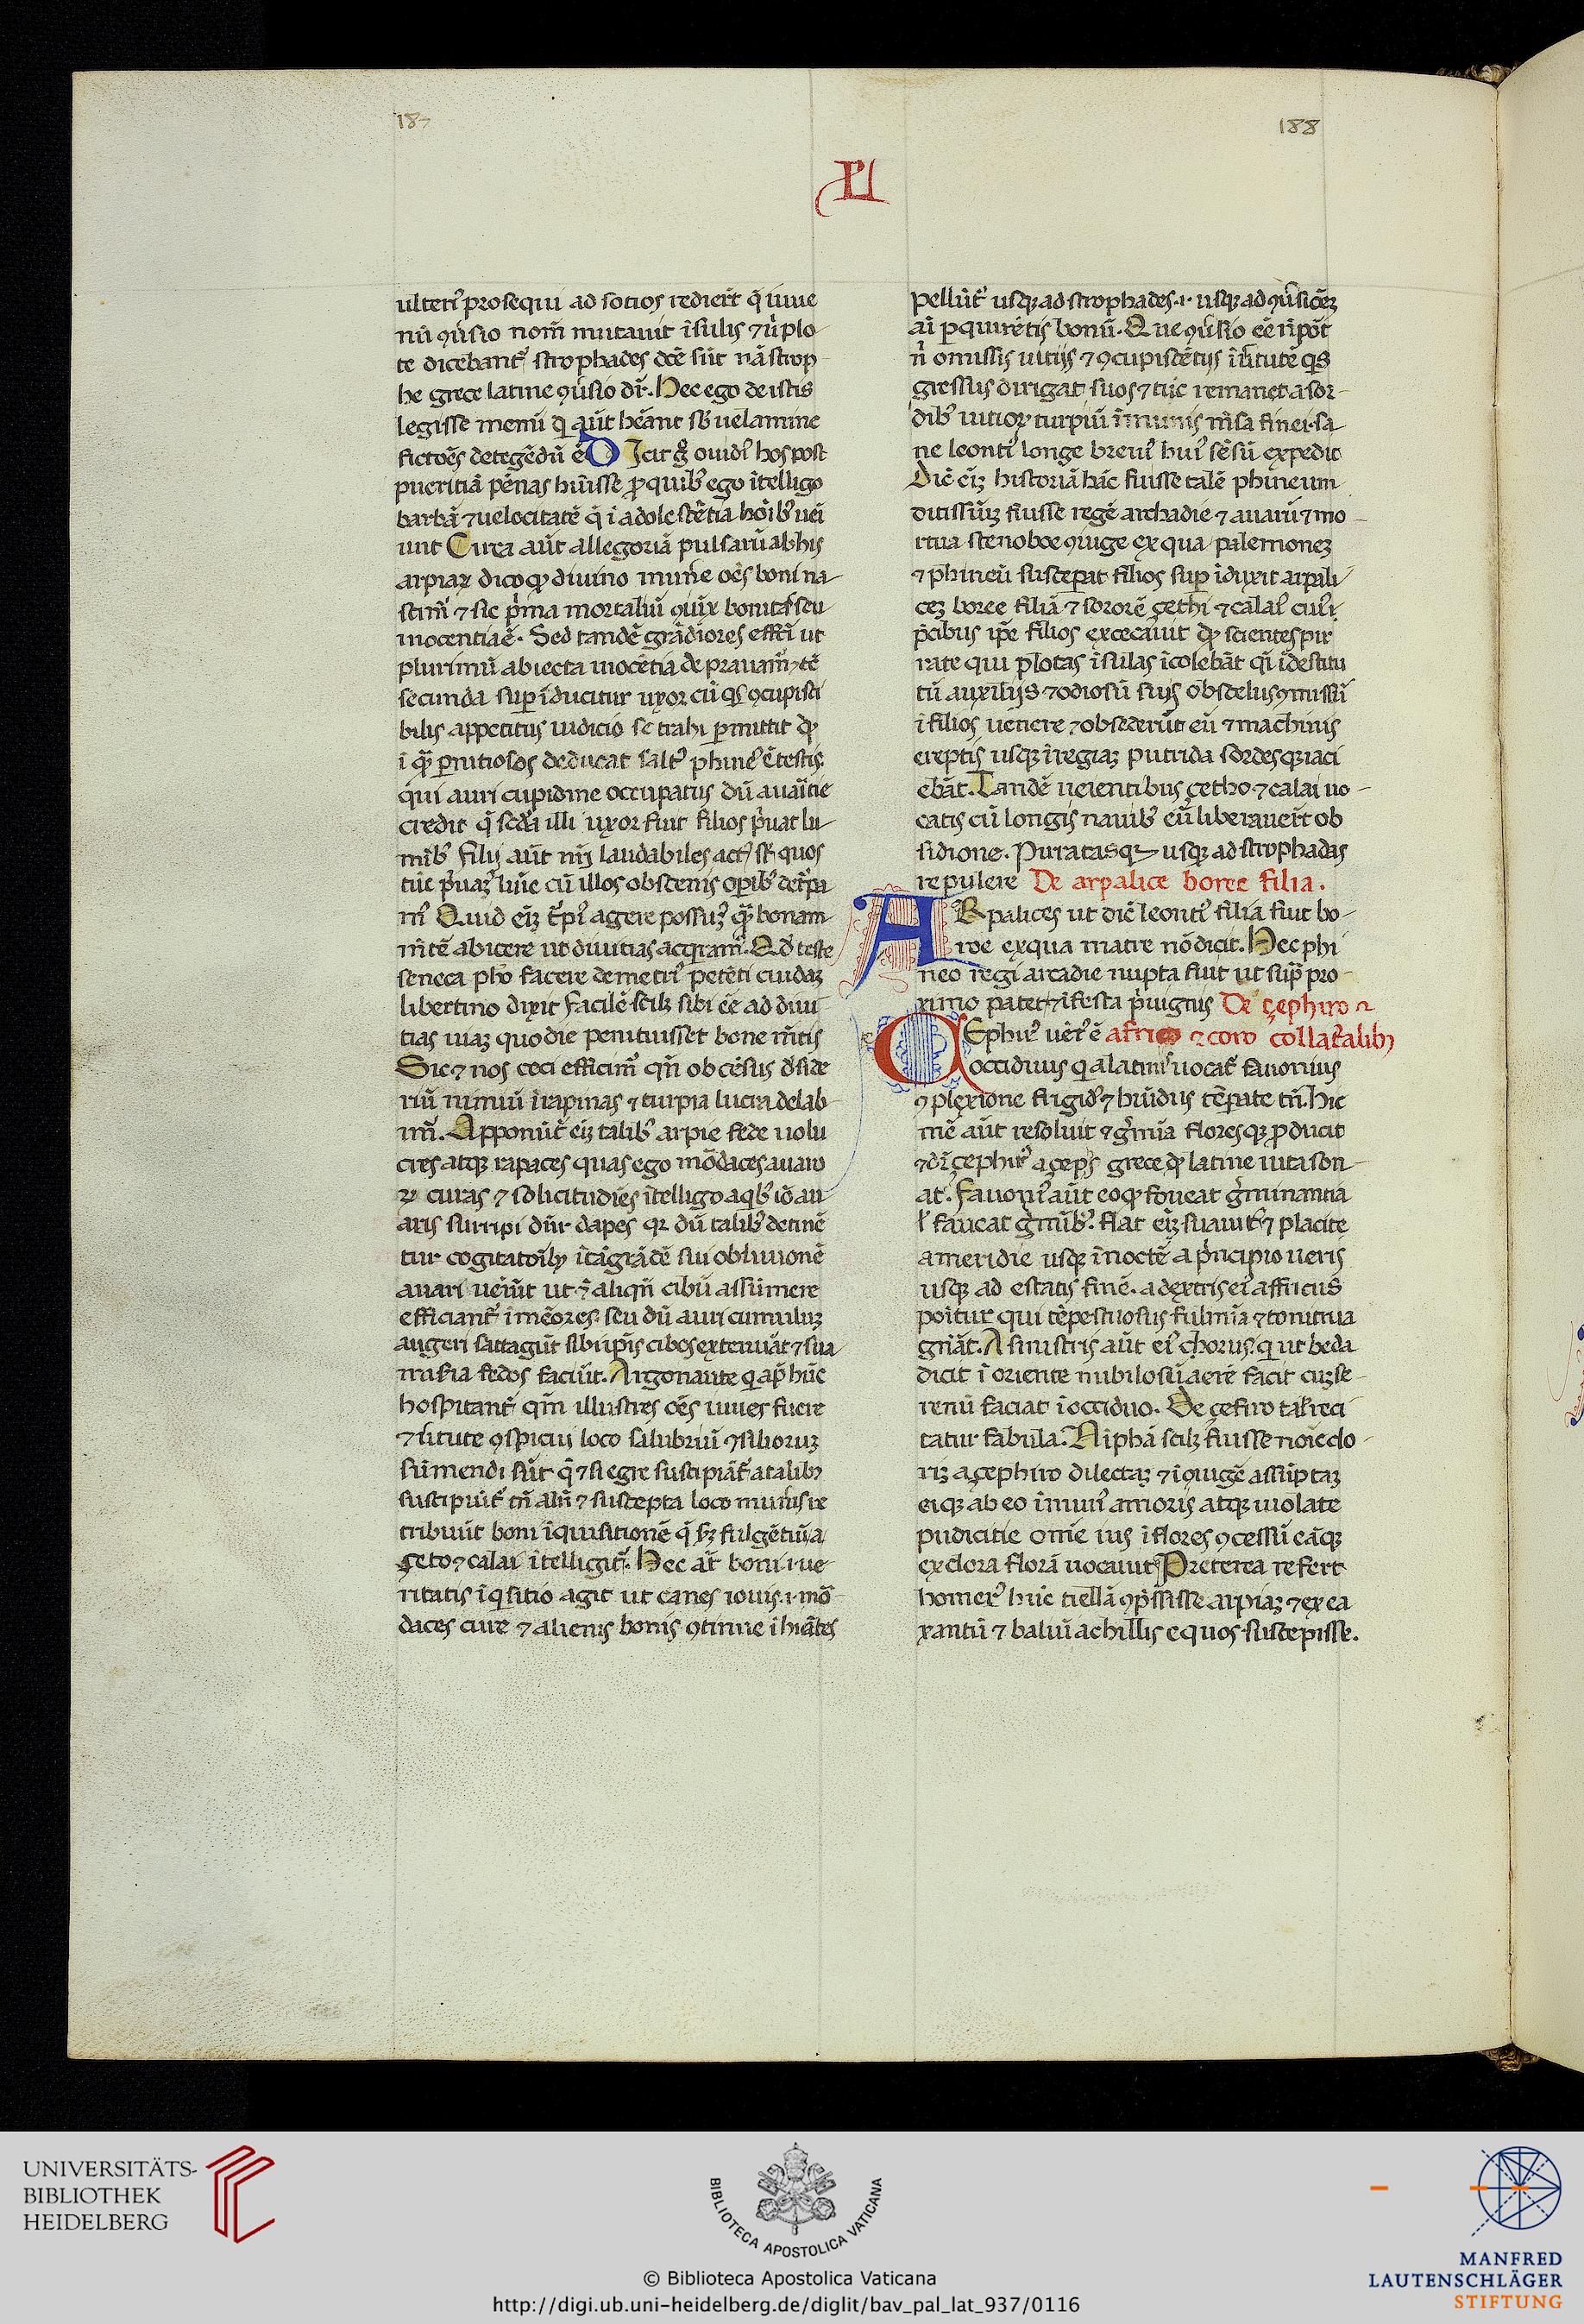 187
188
ulteri᾿ prosequi ad socios rediert̄ q̄ iuue
nū ꝯu᾿sio nom̄ mutauit īsulis ⁊ ūi plo
te dicebant᾿ strophades dc̄e sūt nā strop
he grece latine ꝯu᾿sio dr̄. Hec ego de istis
legisse memī q̄ aūt hēant sb᾿ uelamine
fictōes detegēdū ē Dicit g᾿ ouidi᾿ hos post
pueritiā pēnas hūisse ꝓ quib᾿ ego ītelligo
barbā ⁊ uelocitatē q̄ ī adolescētia hoīb᾿ uei
unt Circa aūt allegoriā pulsarū ab his
arpiaꝝ dico qꝫ diuino mune᾿ oēs boni na
scim᾿ ⁊ sic p᾿ma mortaliū ꝯiūx bonitas seu
inocentia ē. Sed tandē grādiores effc̄i ut
plurimū abiecta inocētia de prauam᾿ ⁊ tē
secunda suꝑ īducitur uxor cū qͥs ꝯcupisci
bilis appetitus iudicio se trahi ꝑmittit qꝫ
ī qͣ ꝑnitiosos deducat salt᾿ phine᾿ ē testis
qui auri cupidine occupatus dū auaritie
credit q̄ scd᾿a illi uxor fuit filios p᾿uat lu
mīb᾿ filij aūt nr̄j laudabiles act᾿ st̄ quos
tūc p᾿uaꝫ luīe cū illos obscenis oꝑib᾿ det᾿pa
m᾿ Quid eīꝫ t᾿pi᾿ agere possuꝫ qͣ bonam
m̄tē abicere ut diuitias acq᾿ram᾿. Qd᾿ teste
seneca ph᾿o facere demetri᾿ petēti cuidaꝫ
libertino dixit facilē scilꝫ sibi ēe ad diui
tias uiaꝫ quo die penituisset bone m̄tis
Sic ⁊ nos ceci efficim᾿ qn̄ ob cēsus d᾿side
riū nimiū ī rapinas ⁊ turpia lucra delab
im᾿. Apponūt᾿ eīꝫ talib᾿ arpie fede uolu
cres atqꝫ rapaces quas ego mōdaces auaro
ꝝ curas ⁊ solicitudīes ītelligo a qb᾿ iō au
aris surripi dūr dapes qꝫ dū talib᾿ detinē
tur cogitatōib᾿ ī tā grādē sui obliuionē
auari ueīūt ut ⁊ aliqn̄ cibū assūmere
efficiant᾿ īmēores. seu dū auri cumuluꝫ
augeri satagūt sibi ip̄is cibos extenuāt ⁊ sua
miseria fedos faciūt. Argonaute q̄ ap᾿ hūc
hospitant᾿ qm̄ illustres oēs iuuēes fuere
⁊ uirtute ꝯspicui loco salubriū ꝯsilioruꝫ
sūmendi sūt q̄ ⁊ si egre suscipiāt᾿ a talib᾿
suscipiūt᾿ tn̄ aliqn̄ ⁊ suscepta loco muneris re
tribuūt boni īquisitionē q̄ sꝫ fulgētiū a
çeto ⁊ calai ītelligit᾿. Hec āt boni .i. ue
ritatis īq᾿sitio agit ut canes iouis .i. mō
daces cure ⁊ alienis bonis ꝯtinue ī hiātes
pellūt᾿ usqꝫ ad strophades .i. usqꝫ ad ꝯu᾿sionēꝫ
aī ꝑquirētis bonū. Que ꝯu᾿sio ēe n̄ pōt
n᾿ omissis uitijs ⁊ ꝯcupiscētijs ī uirtutē qͥs
gressus dirigat suos ⁊ tūc remanet a sor
dib᾿ uitioꝝ turpiū īmunis m̄sa finei. sa
ne leonti᾿ longe breui᾿ hui᾿ sēsū expedit
Dic̄ eīꝫ historiā hāc fuisse talē phineum
ditissimuꝫ fuisse regē archadie ⁊ auarū ⁊ mo
rtua stenoboe ꝯiuge ex qua palemoneꝫ
⁊ phineū susceꝑat filios suꝑ īduxit arpali
ceꝫ boree filiā ⁊ sororē çethi ⁊ calai᾿ cui᾿ ī
p᾿cibus ip̄e filios excecauit qꝫ scientes pir
rate qui plotas īsulas īcolebāt qͥ destitu
tū auxilijs ⁊ odiosū suis ob scelus ꝯmissū
ī filios uenere ⁊ obsederūt eū ⁊ machinis
ereptis usqꝫ ī regiaꝫ putrida sordesqꝫ iaci
ebāt. Tandē ueientibus çetho ⁊ calai uo
catis cū longis nauib᾿ eū liberauert̄ ob
sidione. Piratasqꝫ usqꝫ ad strophadas
repulere De arpalice boree filia.
ARpalices ut dic̄ leonti᾿ filia fuit bo
ree ex qua matre nō dicit. Hec phi
neo regi arcadie nupta fuit ut sup᾿ pro
ximo patet ⁊ īfesta p᾿uignis De çephiro ⁊
Çephir᾿ uēt᾿ ē africo ⁊ coro collat᾿alib᾿
occiduus q̄ a latinis uocat᾿ fauonius
ꝯplexione frigid᾿ ⁊ hūidus tēꝑate tn̄. hic
mē aūt resoluit ⁊ g᾿mia floresqꝫ ꝓducit
⁊ dr̄ çephir᾿ a çeps grece qd᾿ latine uita son
at. Fauoni᾿ aūt eo qꝫ foueat g᾿minantia
l᾿ faueat g᾿mīb᾿. flat eīꝫ suauit᾿ ⁊ placite
a meridie usqꝫ ī noctē a p᾿ncipio ueris
usqꝫ ad estatis finē. a dextris ei᾿ affricus
poītur qui tēpestuosus fulmīa ⁊ tonitrua
gn̄at. A sinistris aūt ei᾿ chorus. q̄ ut beda
dicit ī oriente nubilosū aerē facit cuꝫ se
renū faciat ī occiduo. De çefiro tal᾿ reci
tatur fabula. Niphā scilꝫ fuisse noīe clo
riꝫ a çephiro dilectaꝫ ⁊ ī ꝯiugē assūptaꝫ
eiqꝫ ab eo ī mun᾿ amoris atqꝫ uiolate
pudicitie ōme ius ī flores ꝯcessū eāqꝫ
ex clora florā uocauit Preterea refert
homer᾿ hūc tiellā ꝯpressisse arpiaꝫ ⁊ ex ea
xantū ⁊ baliū achillis equos suscepisse.
UNIVERSITÄTS-
BIBLIOTHEK
HEIDELBERG
BIBLIOTECA APOSTOLICA VATICANA
© Biblioteca Apostolica Vaticana
http://digi.ub.uni-heidelberg.de/diglit/bav_pal_lat_937/0116
MANFRED
LAUTENSCHLÄGER
STIFTUNG